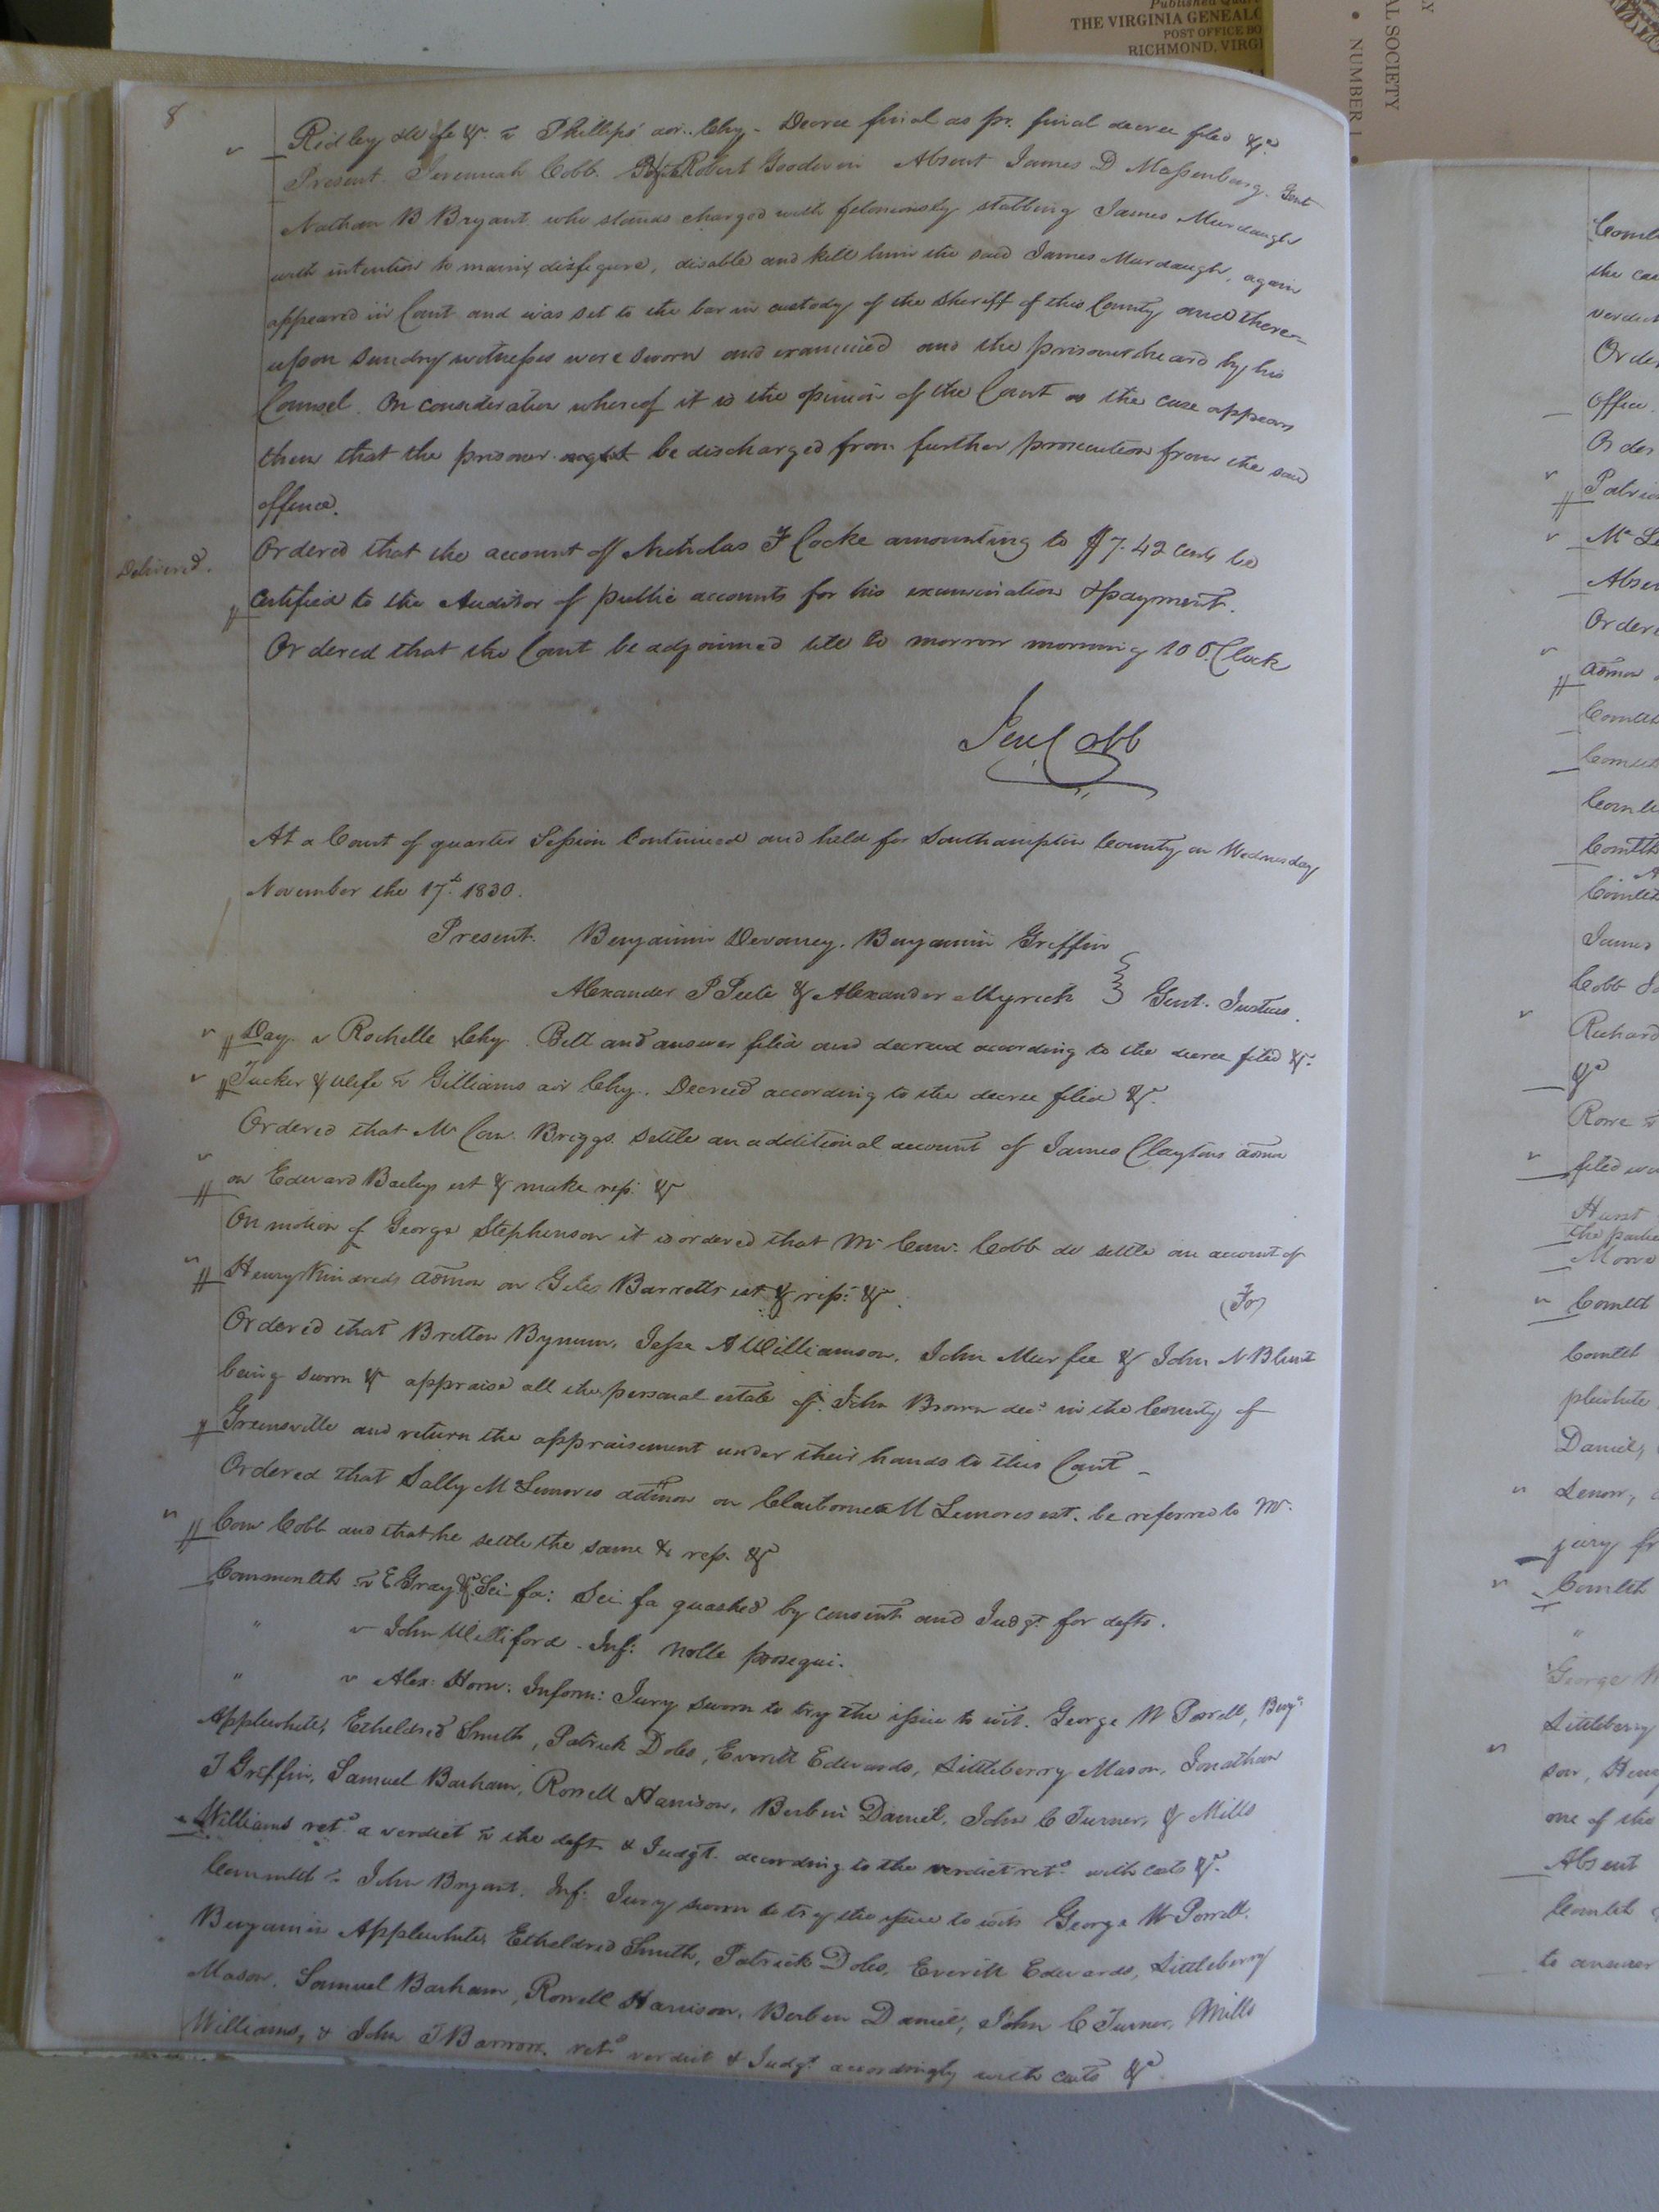 Published Quar
THE VIRGINIA GENEALO
POST OFFICE BO
RICHMOND, VIRGI
Y
AL SOCIETY
• NUMBER 1
8
Ridley & wife &c. v Phillips' adr. Chy - Decree final as pr. final decree filed &c.
Present. Jeremiah Cobb. Robert Goodwin Absent James D Massenburg. Gent
Nathan B Bryant who stands charged with feloniously stabbing James Murdaugh
with intention to maim, disfigure, disable and kill him the said James Murdaugh, again
appeared in Court and was set to the bar in custody of the Sheriff of this County and there-
upon Sundry witnesses were sworn and examined and the prisoner heard by his
Counsel. On consideration whereof it is the opinion of the Court as the case appears
them that the prisoner ought be discharged from further prosecution from the said
offence.
Delivered.
Ordered that the account of Nicholas F Cocke amounting to $7.42 cents be
certified to the Auditor of public accounts for his examination & payment.
Ordered that the Court be adjourned till to morrow morning 10 O.Clock
Jer Cobb
At a Court of quarter Session Continued and held for Southampton County on Wednesday
November the 17th 1830.
Present. Benjamin Devaney. Benjamin Griffin
Alexander P Peete & Alexander Myrick } Gent. Justices.
Day v Rochelle Chy. Bill and answer filed and decreed according to the decree filed &c.
Tucker & wife v Gilliams adr Chy. Decreed according to the decree filed &c.
Ordered that Mr Com. Briggs settle an additional account of James Claytons admon
on Edward Baileys est & make rep. &c
On motion of George Stephenson it is ordered that Mr Com. Cobb do settle an account of
Henry Kindreds admon on Giles Barretts est & rep: &c.
Ordered that Britton Bynum, Jesse A Williamson, John Murfee & John N Blunt
being sworn &c appraise all the personal estate of John Brown decd in the County of
Greensville and return the appraisement under their hands to this Court -
Ordered that Sally McLemores admon on Claiborne McLemores est. be referred to Mr.
Com Cobb and that he settle the same & rep. &c
Commonlth v E Gray &c Sci fa: Sci fa quashed by consent and Judgt. for defts.
" v John Williford. Inf: nolle prosequi.
" v Alex: Horn: Inform: Jury sworn to try the issue to wit. George W Powell, Benja
Applewhite, Etheldred Smith, Patrick Doles, Everitt Edwards, Littleberry Mason, Jonathan
T Griffin, Samuel Barham, Rowell Harrison, Berben Daniel, John C Turner, & Mills
Williams retd a verdict v the deft & Judgt. according to the verdict retd with costs &c.
Commlth v John Bryant. Inf: Jury sworn to try the issue to wit George W Powell,
Benjamin Applewhite, Etheldred Smith, Patrick Doles, Everitt Edwards, Littleberry
Mason, Samuel Barham, Rowell Harrison, Berben Daniel, John C Turner, Mills
Williams, & John T Barrow. retd verdict & Judgt accordingly with costs &c
the
Office.
Absen
James
Cobb
Richard
&c
Rowe v
Hurst
Comlth
Comlth
Daniel,
jury fr
Comlth
"
George W
Littleberry
one of the
Absent
Comlth
to answer